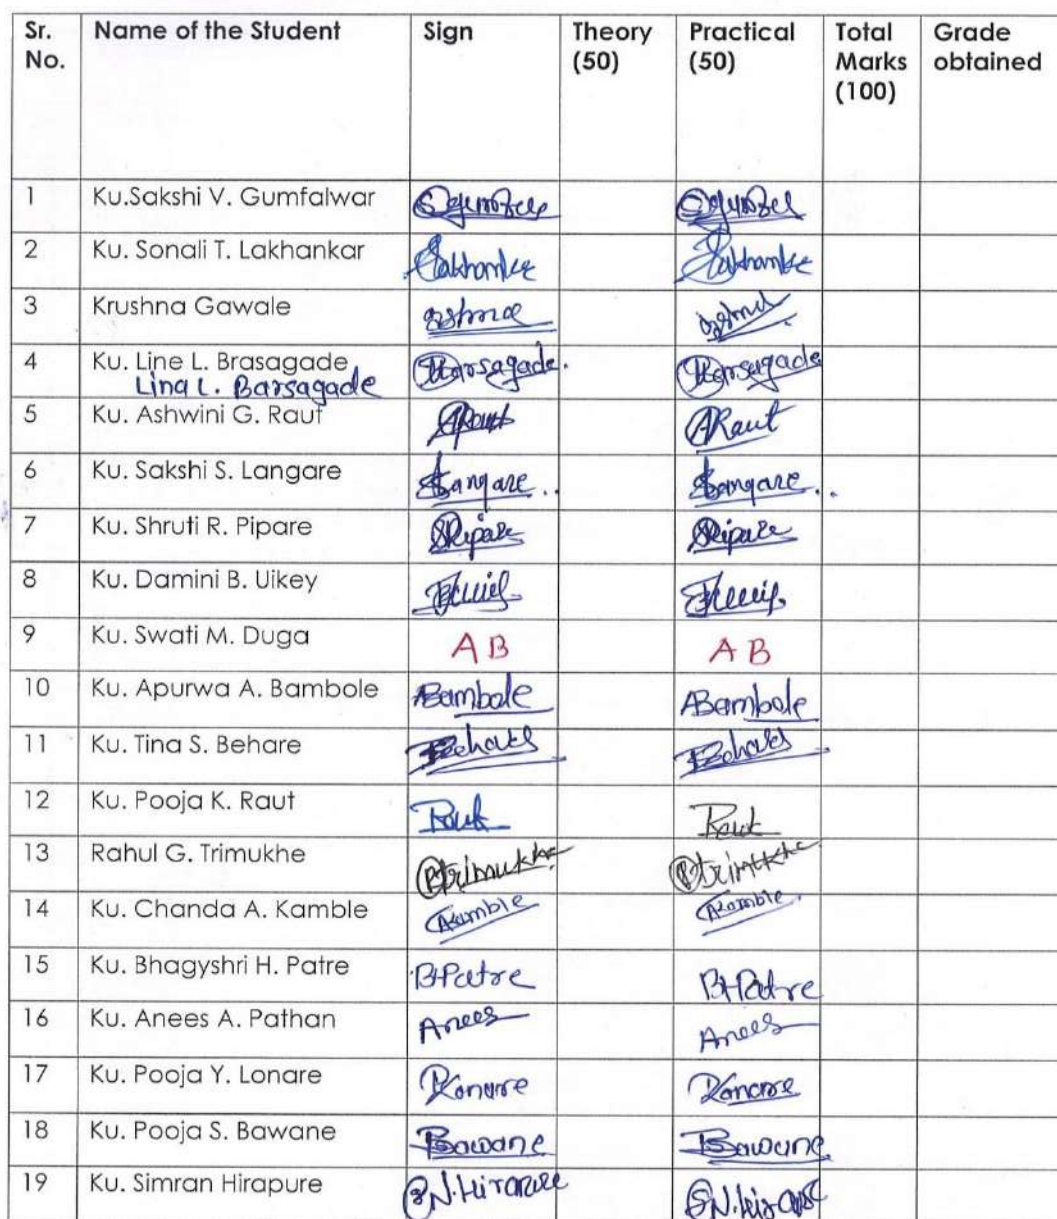 Sr. No. Name of the Student Sign Theory (50) Practical (50) Total Marks (100) Grade obtained
1 Ku.Sakshi V. Gumfalwar
2 Ku. Sonali T. Lakhankar
3 Krushna Gawale
4 Ku. Line L. Brasagade Barsagade. Barsagade
Lina L. Barsagade
5 Ku. Ashwini G. Raut ARaut ARaut
6 Ku. Sakshi S. Langare
7 Ku. Shruti R. Pipare SPipare SPipare
8 Ku. Damini B. Uikey
9 Ku. Swati M. Duga A B A B
10 Ku. Apurwa A. Bambole ABambole ABambole
11 Ku. Tina S. Behare
12 Ku. Pooja K. Raut Raut Raut
13 Rahul G. Trimukhe Rtrimukhe Rtrimukhe
14 Ku. Chanda A. Kamble AKamble AKamble
15 Ku. Bhagyshri H. Patre BHPatre BHPatre
16 Ku. Anees A. Pathan Anees Anees
17 Ku. Pooja Y. Lonare
18 Ku. Pooja S. Bawane Bawane Bawane
19 Ku. Simran Hirapure